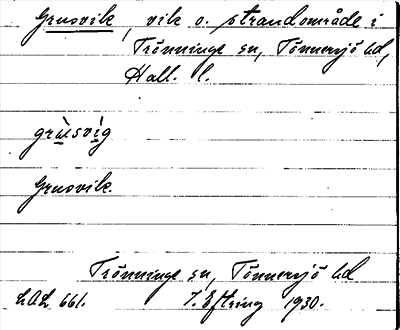 Grusvik, vik o. strandområde i
Trönninge sn, Tönnersjö hd,
Hall. l.
grùsvìg
Grusvik.
Trönninge sn, Tönnersjö hd
LAL 661. J. Eftring 1930.